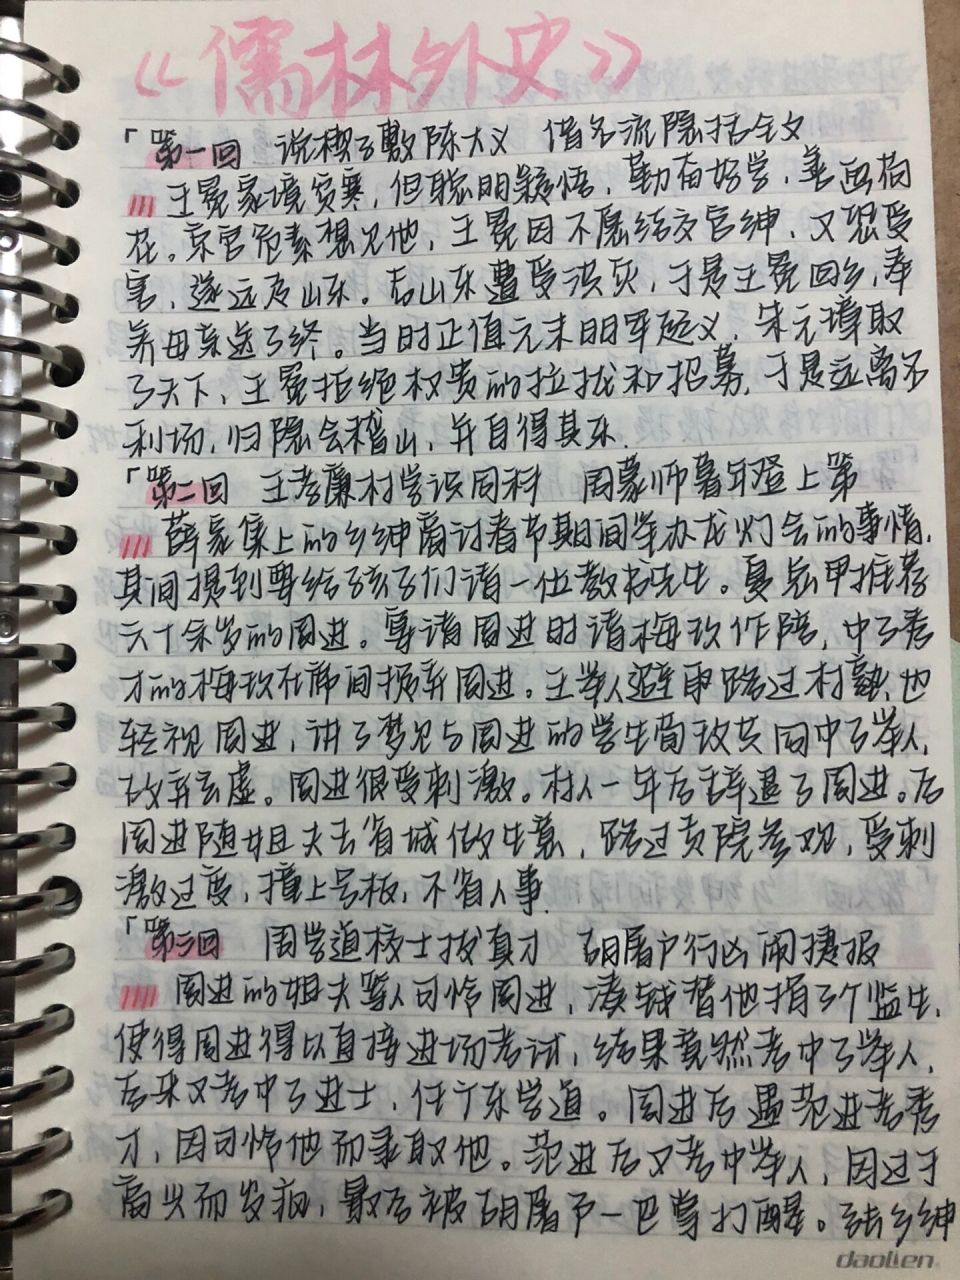 《儒林外史》
「第一回 说楔子敷陈大义 借名流隐括全文
王冕家境贫寒，但聪明颖悟，勤奋好学，善画荷
花。京官危素想见他，王冕因不愿结交官绅，又恐受
害，遂远走山东。后山东遭受洪灾，于是王冕回乡，奉
养母亲送了终。当时正值元末明军起义，朱元璋取
了天下，王冕拒绝权贵的拉拢和招募，于是远离名
利场，归隐会稽山，并自得其乐.
「第二回 王孝廉村学识同科 周蒙师暮年登上第
薛家集上的乡绅商讨春节期间举办龙灯会的事情，
其间摸到要给孩子们请一位教书先生。夏总甲推荐
六十余岁的周进。宴请周进时请梅玖作陪，中了秀
才的梅玖在席间损弃周进。王举人避雨路过村塾，也
轻视周进，讲了梦见与周进的学生荀玫共同中了举人，
故弄玄虚。周进很受刺激。村人一年后辞退了周进。后
周进随姐夫去省城做生意，路过贡院参观，受刺
激过度，撞上号板，不省人事.
「第三回 周学道校士拔真才 胡屠户行凶闹捷报
周进的姐夫等人可怜周进，凑钱替他捐了个监生，
使得周进得以直接进场考试，结果竟然考中了举人，
后来又考中了进士，任广东学道。周进后遇范进考秀
才，因可怜他而录取他。范进后又考中举人，因过于
高兴而发疯，最后被胡屠户一巴掌打醒。张乡绅
daolien